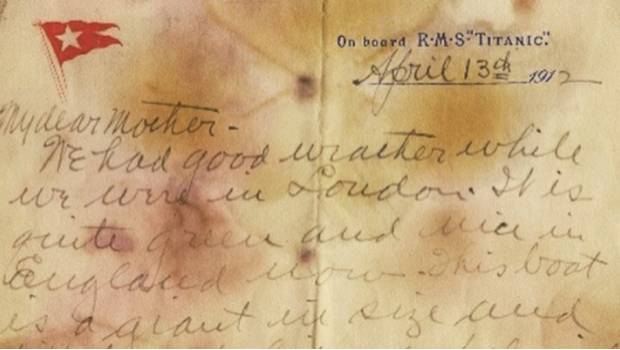 On board R·M·S·"TITANIC".
April 13th 1912
My dear Mother-
We had good weather while
we were in London. It is
quite green and nice in
England now. This boat
is a giant in size and